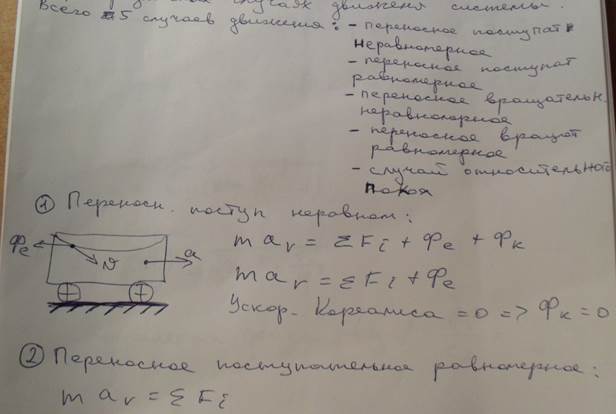 случаях движения системы.
Всего 5 случаев движения: - переносное поступат
неравномерное
- переносное поступат
равномерное
- переносное вращательн
неравномерное
- переносное вращат
равномерное
- случай относительного
покоя
① Переносн. поступ неравном:
Фe
υ
a
m a_r = Σ F_i + Ф_e + Ф_k
m a_r = Σ F_i + Ф_e
Ускор. Кореалиса = 0 => Ф_k = 0
② Переносное поступательное равномерное:
m a_r = Σ F_i